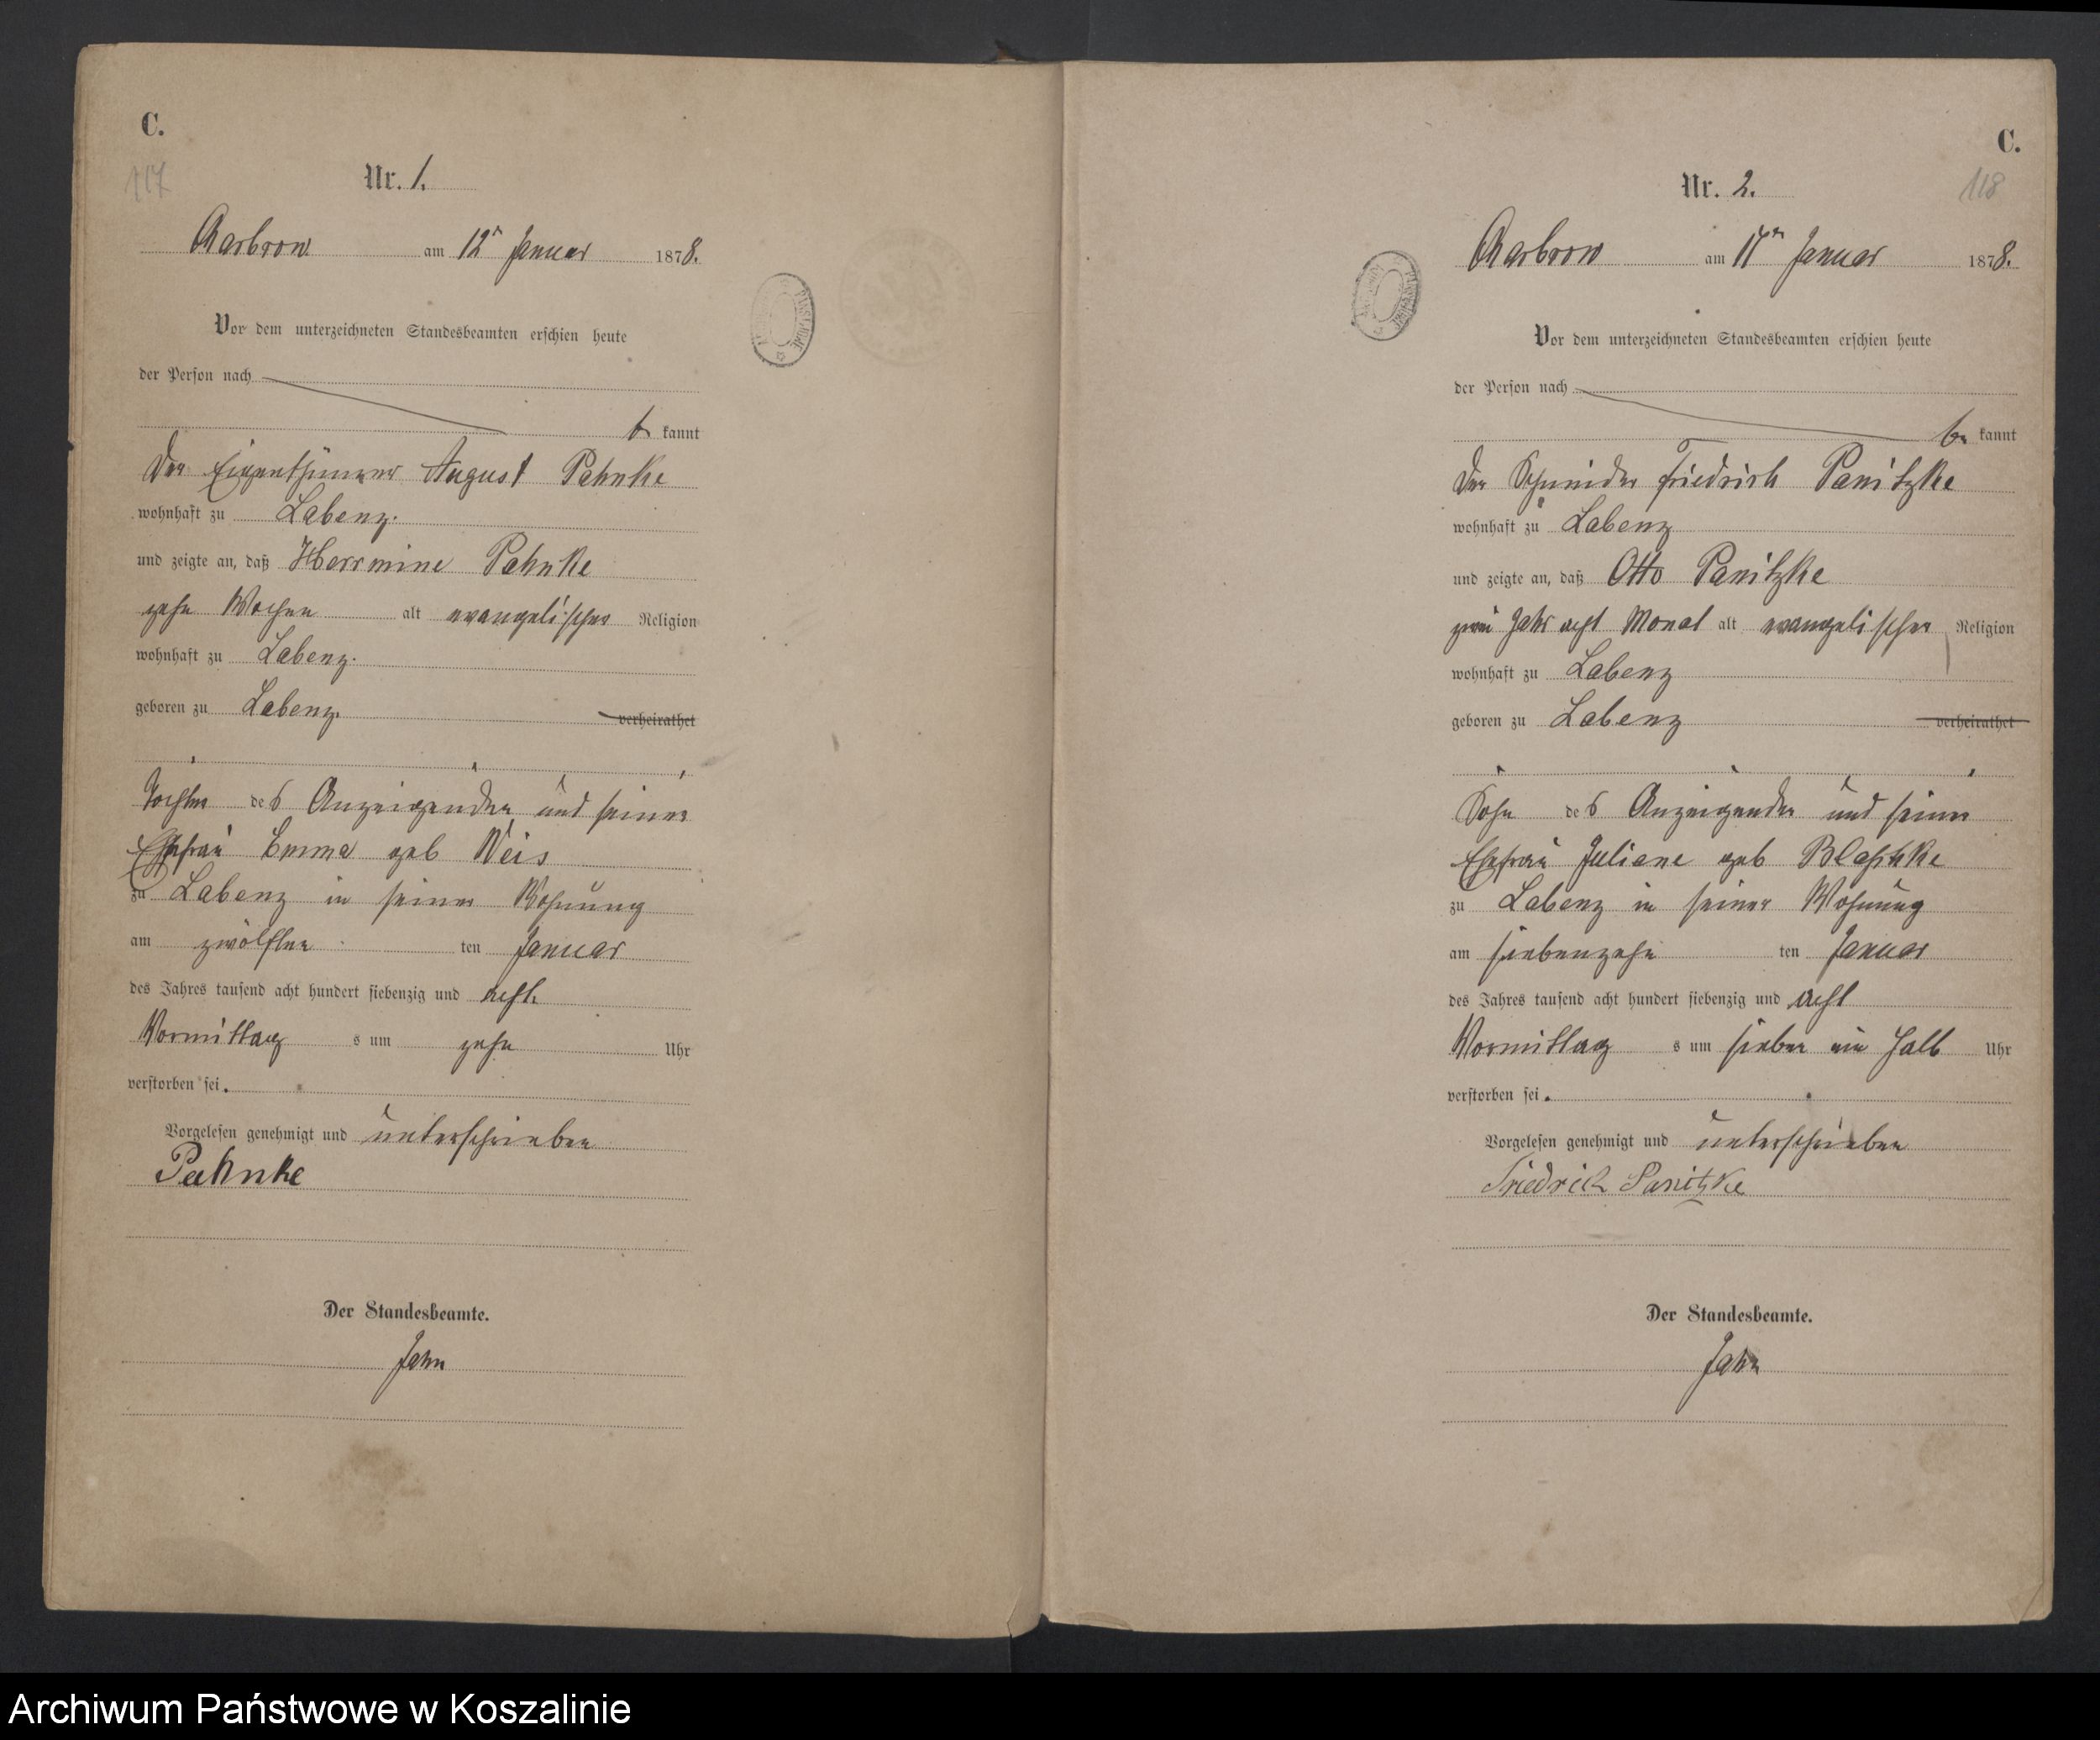 C.
117
Nr. 1.
Charbrow am 12ᵗ Januar 1878.
Vor dem unterzeichneten Standesbeamten erschien heute
der Person nach
be kannt
Der Eigenthümer August Pahnke
wohnhaft zu Labenz.
und zeigte an, daß Herrmine Pahnke
zehn Wochen alt evangelischer Religion
wohnhaft zu Labenz.
geboren zu Labenz. verheirathet
Tochter des Anzeigenden und seiner
Ehefrau Emma geb Weis
zu Labenz in seiner Wohnung
am zwölften ten Januar
des Jahres tausend acht hundert siebenzig und acht.
Vormittag s um zehn Uhr
verstorben sei.
Vorgelesen genehmigt und unterschrieben
Pahnke
Der Standesbeamte.
Jahn
C.
118
Nr. 2.
Charbrow am 17ᵗ Januar 1878.
Vor dem unterzeichneten Standesbeamten erschien heute
der Person nach
be kannt
Der Schneider Friedrich Panitzke
wohnhaft zu Labenz
und zeigte an, daß Otto Panitzke
zwei Jahr acht Monat alt evangelischer Religion
wohnhaft zu Labenz
geboren zu Labenz verheirathet
Sohn des Anzeigenden und seiner
Ehefrau Juliane geb Blaschke
zu Labenz in seiner Wohnung
am siebenzehn ten Januar
des Jahres tausend acht hundert siebenzig und acht
Vormittag s um sieben ein halb Uhr
verstorben sei.
Vorgelesen genehmigt und unterschrieben
Friedrich Panitzke
Der Standesbeamte.
Jahn
Archiwum Państwowe w Koszalinie